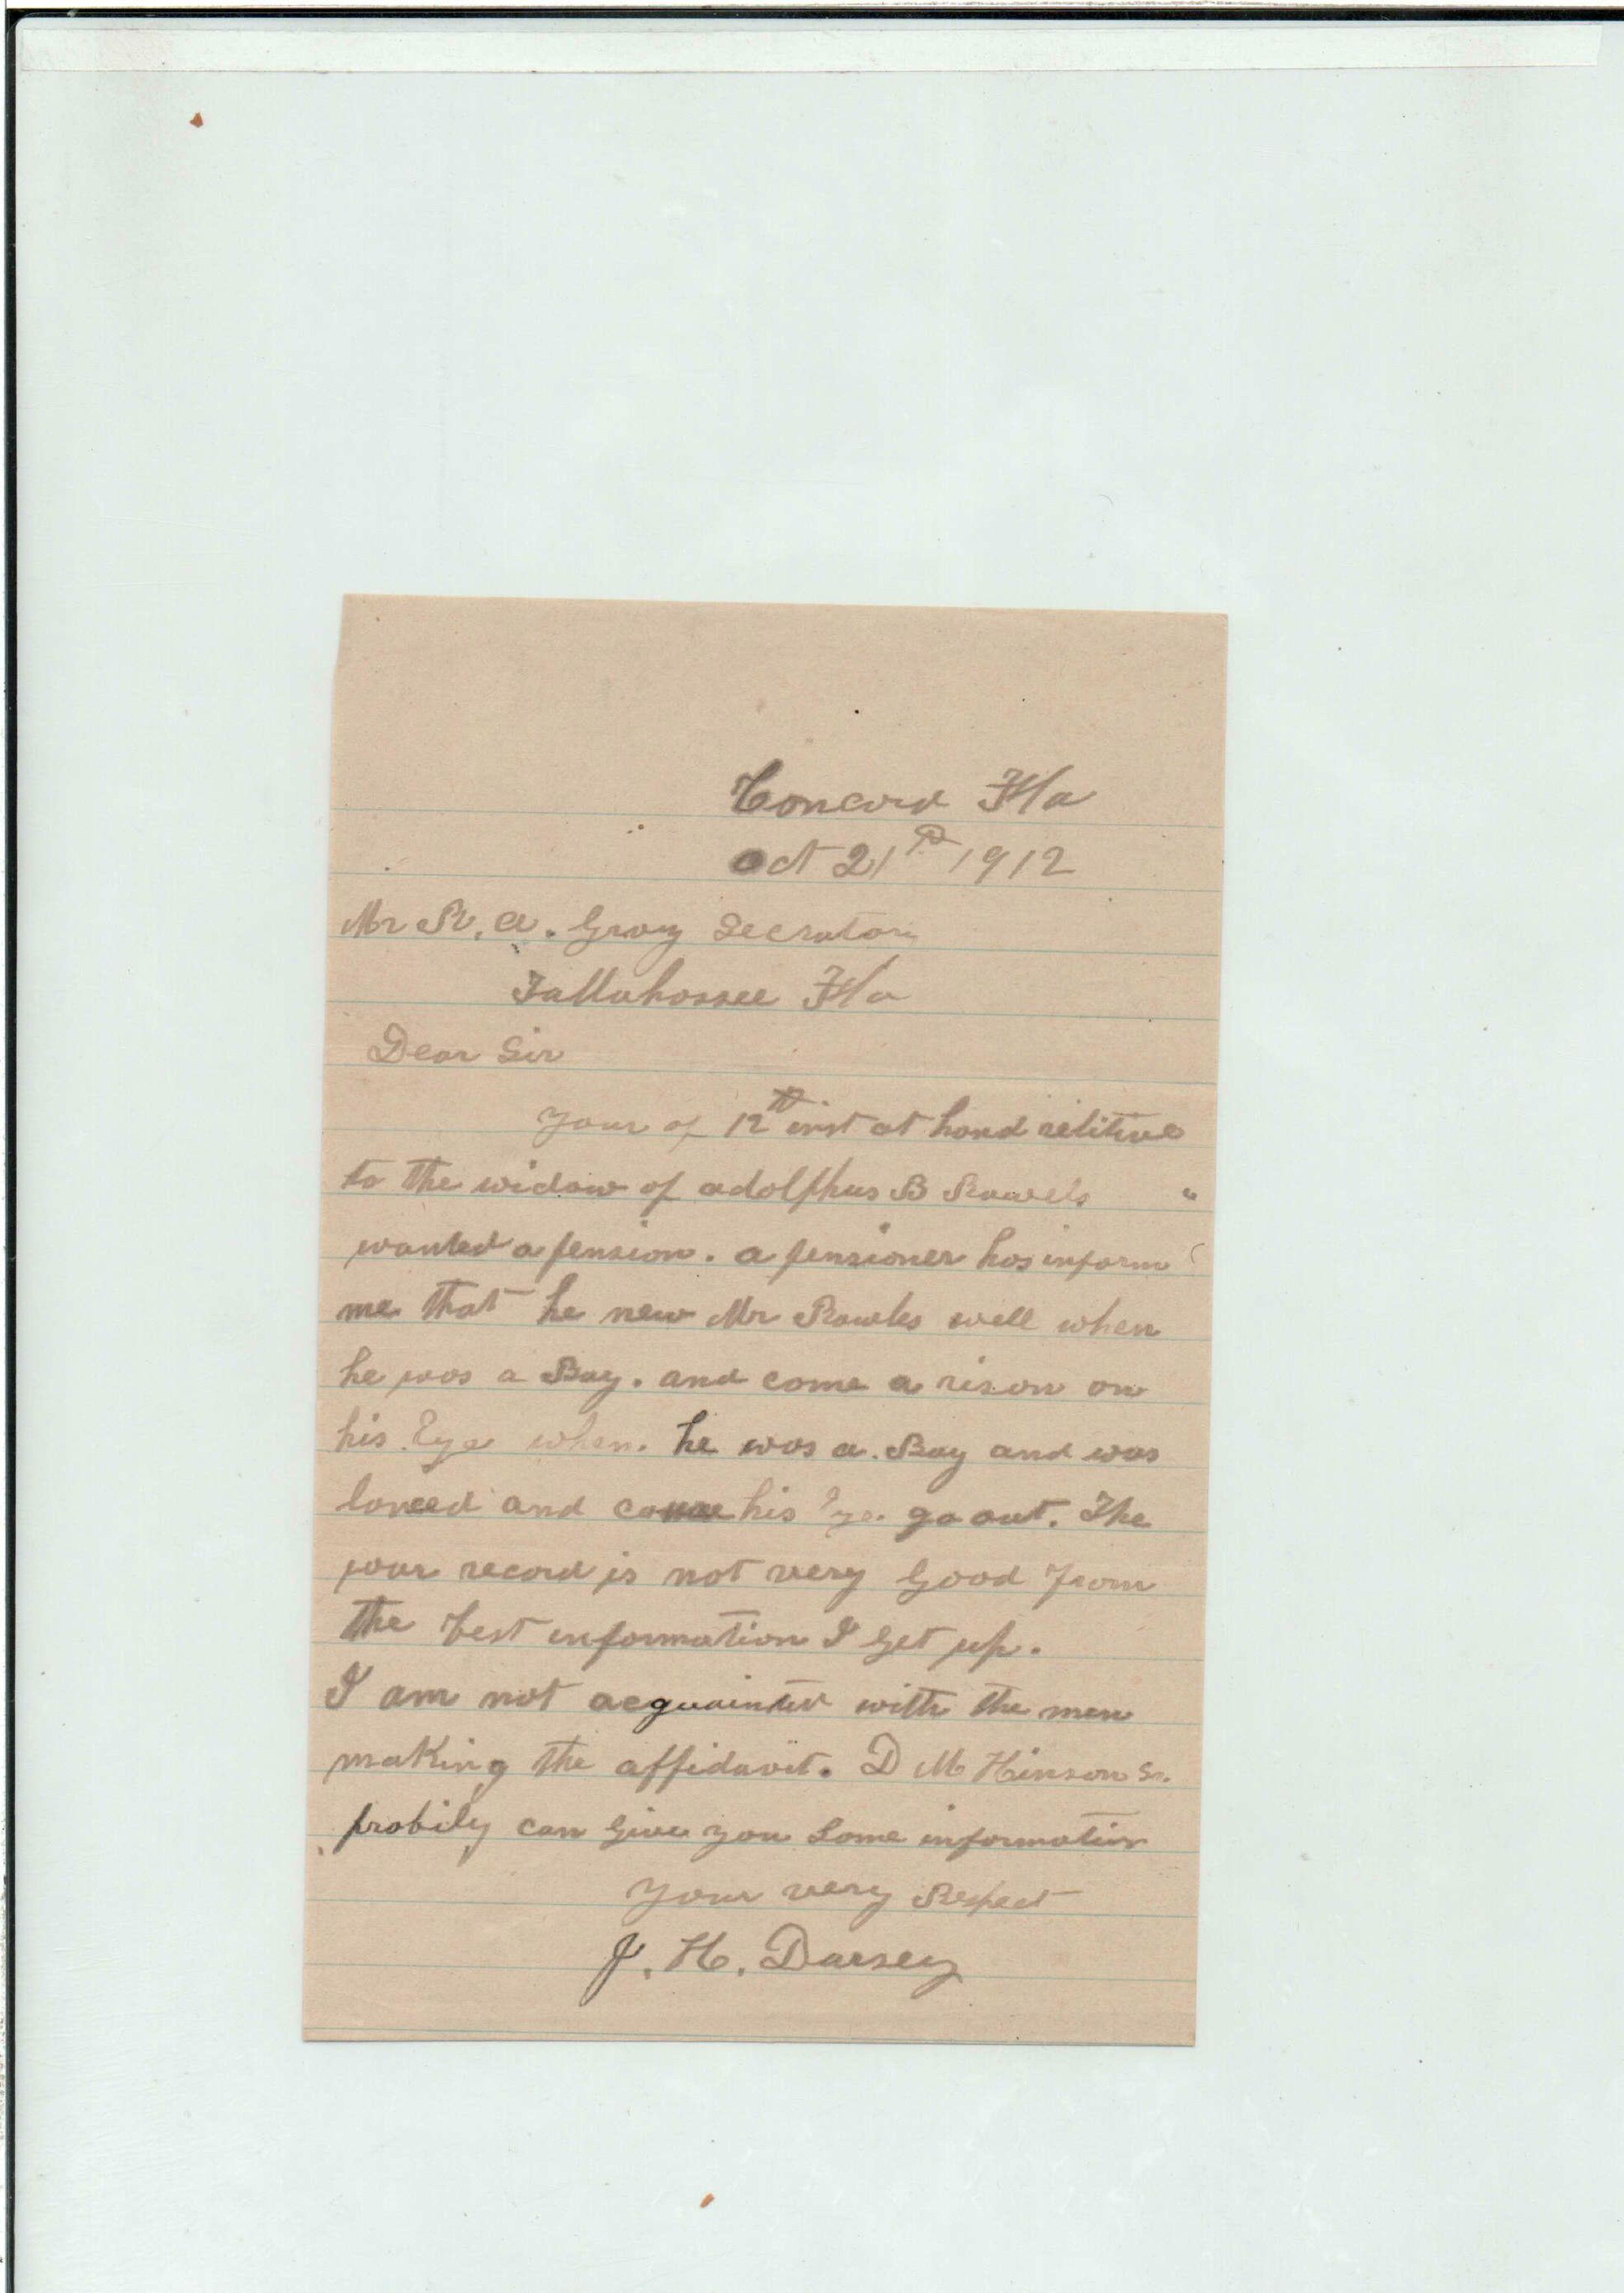 Concord Fla
Oct 21st 1912
Mr R. A. Gray Secratary
Tallahassee Fla
Dear Sir
Your of 12th inst at hand relitive
to the widow of adolphus B Rawels
wanted a pension. a pensioner has inform
me that he new Mr Rawles well when
he was a Boy. and come a rison on
his Eye when. he was a. Boy and was
lanced and his Eye go out. The
war record is not very Good From
the best information I Get up.
I am not acquainted with the men
making the affidavit. D M Hinson Sr.
probily can Give you Some information
Your very Respect
J. H. Darsey